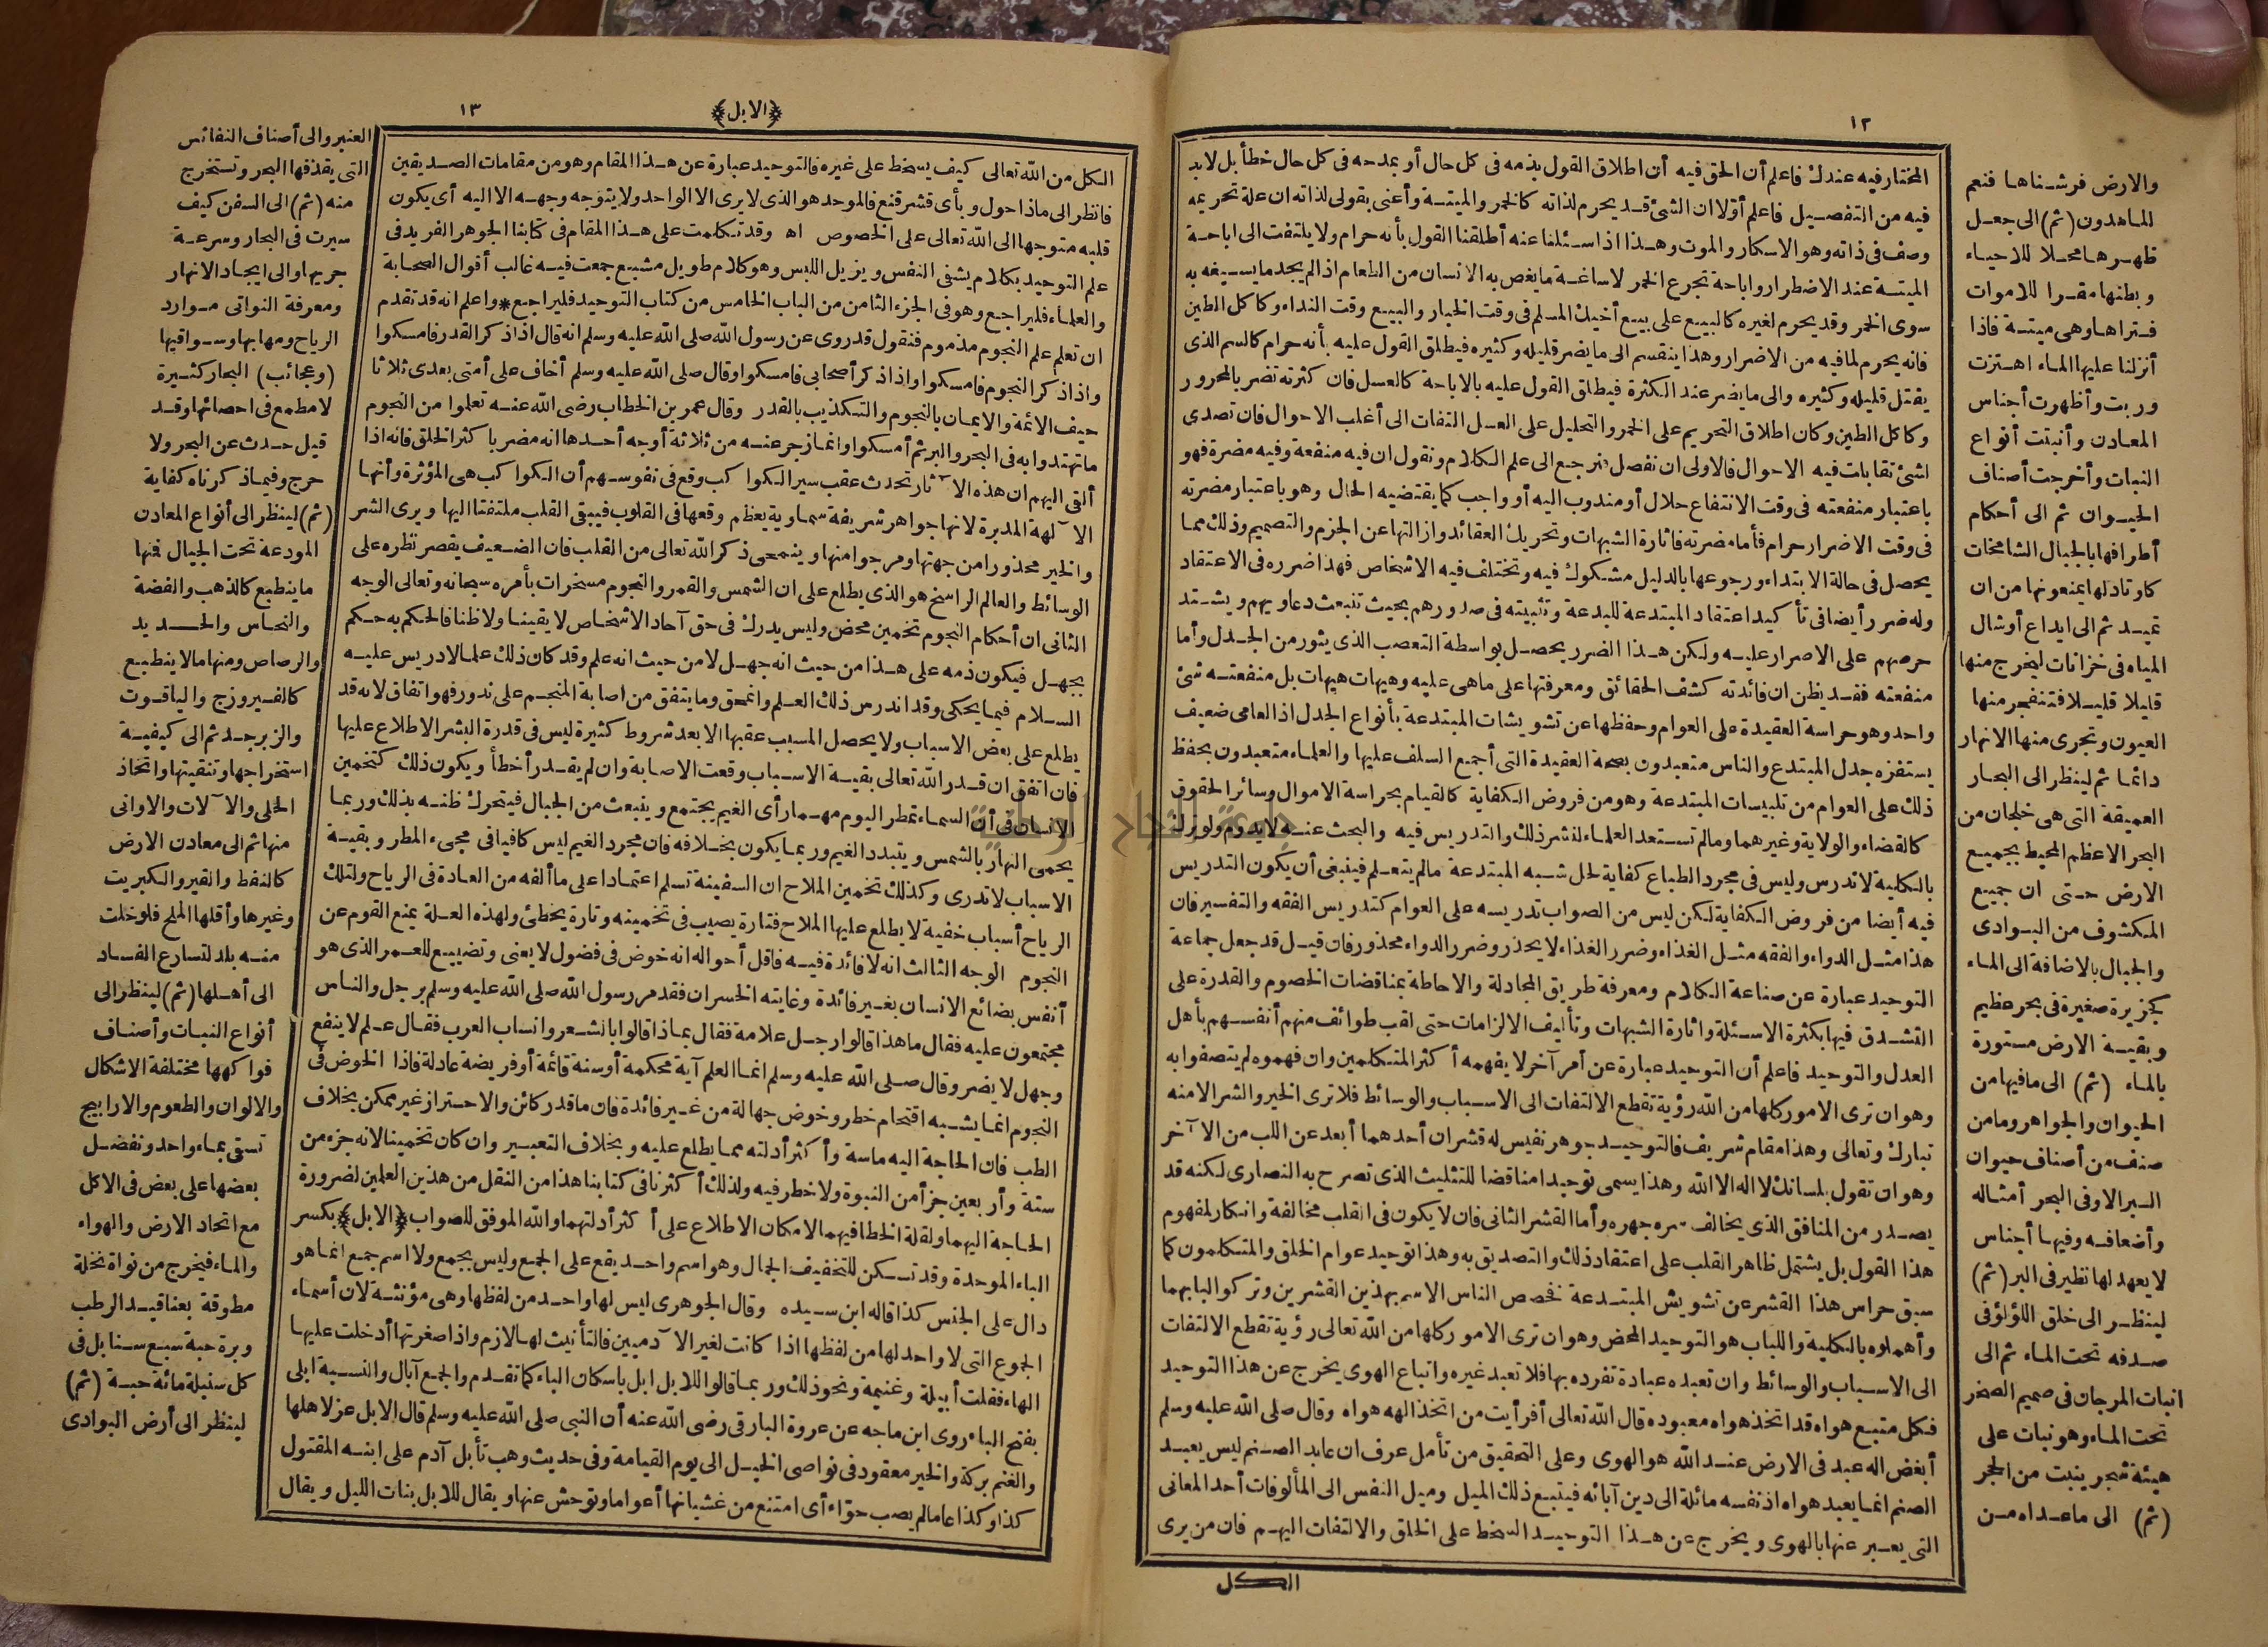 ١٢
المختار فيه عندك فاعلم أن الحق فيه أن اطلاق القول بذمه فى كل حال أو بمدحه فى كل حال خطأ بل لابد
فيه من التفصيل فاعلم أوّلا ان الشئ قد يحرم لذاته كالخمر والميتة وأعنى بقولى لذاته ان علة تحريمه
وصف فى ذاته وهو الاسكار والموت وهذا اذا سئلنا عنه أطلقنا القول بأنه حرام ولا يلتفت الى اباحة
الميتة عند الاضطرار واباحة تجرع الخمر لاساغة ما يغص به الانسان من الطعام اذا لم يجد ما يسيغه به
سوى الخمر وقد يحرم لغيره كالبيع على بيع أخيك المسلم فى وقت الخيار والبيع وقت النداء وكاكل الطين
فانه يحرم لما فيه من الاضرار وهذا ينقسم الى ما يضر قليله وكثيره فيطلق القول عليه بأنه حرام كالسم الذى
يقتل قليله وكثيره والى ما يضر عند الكثرة فيطلق القول عليه بالاباحة كالعسل فان كثرته تضر بالمحرور
وكاكل الطين وكان اطلاق التحريم على الخمر والتحليل على العسل التفات الى أغلب الاحوال فان تصدى
لشئ تقابلت فيه الاحوال فالاولى ان تفصل فنرجع الى علم الكلام ونقول ان فيه منفعة وفيه مضرة فهو
باعتبار منفعته فى وقت الانتفاع حلال أو مندوب اليه أو واجب كما يقتضيه الحال وهو باعتبار مضرته
فى وقت الاضرار حرام فأما مضرته فاثارة الشبهات وتحريك العقائد وازالتها عن الجزم والتصميم وذلك مما
يحصل فى حالة الابتداء ورجوعها بالدليل مشكوك فيه وتختلف فيه الاشخاص فهذا ضرره فى الاعتقاد
وله ضرر أيضا فى تأكيد اعتقاد المبتدعة للبدعة وتثبيته فى صدورهم بحيث تنبعث دعاويهم ويشتد
حرصهم على الاصرار عليه ولكن هذا الضرر يحصل بواسطة التعصب الذى يثور من الجدل وأما
منفعته فقد يظن ان فائدته كشف الحقائق ومعرفتها على ماهى عليه وهيهات هيهات بل منفعته شئ
واحد وهو حراسة العقيدة على العوام وحفظها عن تشويشات المبتدعة بأنواع الجدل اذ العامى ضعيف
يستفزه جدل المبتدع والناس متعبدون بصحة العقيدة التى أجمع السلف عليها والعلماء متعبدون بحفظ
ذلك على العوام من تلبيسات المبتدعة وهو من فروض الكفاية كالقيام بحراسة الاموال وسائر الحقوق
كالقضاء والولاية وغيرهما وما لم تستعد العلماء لنشر ذلك والتدريس فيه والبحث عنه لا يدوم ولو ترك
بالكلية لاندرس وليس فى مجرد الطباع كفاية لحل شبه المبتدعة ما لم يتعلم فينبغى أن يكون التدريس
فيه أيضا من فروض الكفاية لكن ليس من الصواب تدريسه على العوام كتدريس الفقه والتفسير فان
هذا مثل الدواء والفقه مثل الغذاء وضرر الغذاء لا يحذر وضرر الدواء محذور فان قيل قد جعل جماعة
التوحيد عبارة عن صناعة الكلام ومعرفة طريق المجادلة والاحاطة بمناقضات الخصوم والقدرة على
التشدق فيها بكثرة الاسئلة واثارة الشبهات وتأليف الالزامات حتى لقب طوائف منهم أنفسهم بأهل
العدل والتوحيد فاعلم أن التوحيد عبارة عن أمر آخر لا يفهمه أكثر المتكلمين وان فهموه لم يتصفوا به
وهو ان ترى الامور كلها من الله رؤية تقطع الالتفات الى الاسباب والوسائط فلا ترى الخير والشر الا منه
تبارك وتعالى وهذا مقام شريف فالتوحيد جوهر نفيس له قشران أحدهما أبعد عن اللب من الآخر
وهو ان تقول بلسانك لا اله الا الله وهذا يسمى توحيدا مناقضا للتثليث الذى تصرح به النصارى لكنه قد
يصدر من المنافق الذى يخالف سره جهره وأما القشر الثانى فان لا يكون فى القلب مخالفة وانكار لمفهوم
هذا القول بل يشتمل ظاهر القلب على اعتقاد ذلك والتصديق به وهذا توحيد عوام الخلق والمتكلمون كما
سبق حراس هذا القشر عن تشويش المبتدعة فخصص الناس الاسم بهذين القشرين وتركوا لبابهما
وأهملوه بالكلية واللباب هو التوحيد المحض وهو ان ترى الامور كلها من الله تعالى رؤية تقطع الالتفات
الى الاسباب والوسائط وان تعبده عبادة تفرده بها فلا تعبد غيره واتباع الهوى يخرج عن هذا التوحيد
فكل متبع هواه قد اتخذ هواه معبوده قال الله تعالى أفرأيت من اتخذ الهه هواه وقال صلى الله عليه وسلم
أبغض اله عبد فى الارض عند الله هو الهوى وعلى التحقيق من تأمل عرف ان عابد الصنم ليس يعبد
الصنم انما يعبد هواه اذ نفسه مائلة الى دين آبائه فيتبع ذلك الميل وميل النفس الى المألوفات أحد المعانى
التى يعبر عنها بالهوى ويخرج عن هذا التوحيد السخط على الخلق والالتفات اليهم فان من يرى
الكل
والارض فرشناها فنعم
الماهدون (ثم) الى جعل
ظهرها محلا للاحياء
وبطنها مقرا للاموات
فتراها وهى ميتة فاذا
أنزلنا عليها الماء اهتزت
وربت وأظهرت أجناس
المعادن وأنبتت أنواع
النبات وأخرجت أصناف
الحيوان ثم الى أحكام
أطرافها بالجبال الشامخات
كاوتاد لها يمنعونها من ان
تميد ثم الى ايداع أوشال
المياه فى خزانات ليخرج منها
قليلا قليلا فتنفجر منها
العيون وتجرى منها الانهار
دائما ثم لينظر الى البحار
العميقة التى هى خلجان من
البحر الاعظم المحيط بجميع
الارض حتى ان جميع
المكشوف من البوادى
والجبال بالاضافة الى الماء
كجزيرة صغيرة فى بحر عظيم
وبقية الارض مستورة
بالماء (ثم) الى ما فيها من
الحيوان والجواهر وما من
صنف من أصناف حيوان
البر الا وفى البحر أمثاله
وأضعافه وفيها أجناس
لا يعهد لها نظير فى البر (ثم)
لينظر الى خلق اللؤلؤ فى
صدفه تحت الماء ثم الى
انبات المرجان فى صميم الصخر
تحت الماء وهو نبات على
هيئة شجر ينبت من الحجر
(ثم) الى ما عداه من
﴿الابل﴾
١٣
الكل من الله تعالى كيف يسخط على غيره فالتوحيد عبارة عن هذا المقام وهو من مقامات الصديقين
فانظر الى ماذا حول وبأى قشر قنع فالموحد هو الذى لا يرى الا الواحد ولا يتوجه وجهه الا اليه أى يكون
قلبه متوجها الى الله تعالى على الخصوص اه وقد تكلمت على هذا المقام فى كتابنا الجوهر الفريد فى
علم التوحيد بكلام يشفى النفس ويزيل اللبس وهو كلام طويل مشبع جمعت فيه غالب أقوال الصحابة
والعلماء فليراجع وهو فى الجزء الثامن من الباب الخامس من كتاب التوحيد فليراجع * واعلم انه قد تقدم
ان تعلم علم النجوم مذموم فنقول قد روى عن رسول الله صلى الله عليه وسلم انه قال اذا ذكر القدر فامسكوا
واذا ذكر النجوم فامسكوا واذا ذكر أصحابى فامسكوا وقال صلى الله عليه وسلم أخاف على أمتى بعدى ثلاثا
حيف الائمة والايمان بالنجوم والتكذيب بالقدر وقال عمر بن الخطاب رضى الله عنه تعلموا من النجوم
ما تهتدوا به فى البحر والبر ثم أمسكوا وانما زجر عنه من ثلاثة أوجه أحدها انه مضر باكثر الخلق فانه اذا
ألقى اليهم ان هذه الآثار تحدث عقب سير الكواكب وقع فى نفوسهم أن الكواكب هى المؤثرة وأنها
الآلهة المدبرة لانها جواهر شريفة سماوية يعظم وقعها فى القلوب فيبقى القلب ملتفتا اليها ويرى الشر
والخير محذورا من جهتها ومرجوا منها وينمحى ذكر الله تعالى من القلب فان الضعيف يقصر نظره على
الوسائط والعالم الراسخ هو الذى يطلع على ان الشمس والقمر والنجوم مسخرات بأمره سبحانه وتعالى الوجه
الثانى ان أحكام النجوم تخمين محض وليس يدرك فى حق آحاد الاشخاص لا يقينا ولا ظنا فالحكم به حكم
بجهل فيكون ذمه على هذا من حيث انه جهل لا من حيث انه علم وقد كان ذلك علما لادريس عليه
السلام فيما يحكى وقد اندرس ذلك العلم وانمحق وما يتفق من اصابة المنجم على ندور فهو اتفاق لانه قد
يطلع على بعض الاسباب ولا يحصل المسبب عقبها الا بعد شروط كثيرة ليس فى قدرة البشر الاطلاع عليها
فان اتفق ان قدر الله تعالى بقية الاسباب وقعت الاصابة وان لم يقدر أخطأ ويكون ذلك كتخمين
الانسان فى أن السماء تمطر اليوم مهما رأى الغيم يجتمع وينبعث من الجبال فيتحرك ظنه بذلك وربما
يحمى النهار بالشمس ويتبدد الغيم وربما يكون بخلافه فان مجرد الغيم ليس كافيا فى مجىء المطر وبقية
الاسباب لا تدرى وكذلك تخمين الملاح ان السفينة تسلم اعتمادا على ما ألفه من العادة فى الرياح ولتلك
الرياح أسباب خفية لا يطلع عليها الملاح فتارة يصيب فى تخمينه وتارة يخطئ ولهذه العلة يمنع القوم عن
النجوم الوجه الثالث انه لا فائدة فيه فاقل أحواله انه خوض فى فضول لا يعنى وتضييع للعمر الذى هو
أنفس بضائع الانسان بغير فائدة وغايته الخسران فقد مر رسول الله صلى الله عليه وسلم برجل والناس
مجتمعون عليه فقال ما هذا قالوا رجل علامة فقال بماذا قالوا بالشعر وانساب العرب فقال علم لا ينفع
وجهل لا يضر وقال صلى الله عليه وسلم انما العلم آية محكمة أو سنة قائمة أو فريضة عادلة فاذا الخوض فى
النجوم انما يشبه اقتحام خطر وخوض جهالة من غير فائدة فان ما قدر كائن والاحتراز غير ممكن بخلاف
الطب فان الحاجة اليه ماسة وأكثر أدلته مما يطلع عليه وبخلاف التعبير وان كان تخمينا لانه جزء من
ستة وأربعين جزأ من النبوة ولا خطر فيه ولذلك أكثرنا فى كتابنا هذا من النقل من هذين العلمين لضرورة
الحاجة اليهما ولقلة الخطا فيهما لامكان الاطلاع على أكثر أدلتهما والله الموفق للصواب ﴿الابل﴾ بكسر
الباء الموحدة وقد تسكن للتخفيف الجمال وهو اسم واحد يقع على الجمع وليس بجمع ولا اسم جمع انما هو
دال على الجنس كذا قاله ابن سيده وقال الجوهرى ليس لها واحد من لفظها وهى مؤنثة لان أسماء
الجموع التى لا واحد لها من لفظها اذا كانت لغير الآدميين فالتأنيث لها لازم واذا صغرتها أدخلت عليها
الهاء فقلت أبيلة وغنيمة ونحو ذلك وربما قالوا للابل ابل باسكان الباء كما تقدم والجمع آبال والنسبة ابلى
بفتح الباء روى ابن ماجه عن عروة البارقى رضى الله عنه أن النبى صلى الله عليه وسلم قال الابل عز لاهلها
والغنم بركة والخير معقود فى نواصى الخيل الى يوم القيامة وفى حديث وهب تأبل آدم على ابنه المقتول
كذا وكذا عاما لم يصب حوّاء أى امتنع من غشيانها أعواما وتوحش عنها ويقال للابل بنات الليل ويقال
العنبر والى أصناف النفائس
التى يقذفها البحر وتستخرج
منه (ثم) الى السفن كيف
سيرت فى البحار وسرعة
جريها والى ايجاد الانهار
ومعرفة النواتى موارد
الرياح ومهابها وسواقيها
(وعجائب) البحار كثيرة
لا مطمع فى احصائها وقد
قيل حدث عن البحر ولا
حرج وفيما ذكرناه كفاية
(ثم) لينظر الى أنواع المعادن
المودعة تحت الجبال فنها
ما ينطبع كالذهب والفضة
والنحاس والحديد
والرصاص ومنها ما لا ينطبع
كالفيروزج والياقوت
والزبرجد ثم الى كيفية
استخراجها وتنقيتها واتخاذ
الحلى والآلات والاوانى
منها ثم الى معادن الارض
كالنفط والقير والكبريت
وغيرها وأقلها الملح فلو خلت
منه بلد لتسارع الفساد
الى أهلها (ثم) لينظر الى
أنواع النبات وأصناف
فواكهها مختلفة الاشكال
والالوان والطعوم والاراييح
تسقى بماء واحد ونفضل
بعضها على بعض فى الاكل
مع اتحاد الارض والهواء
والماء فيخرج من نواة نخلة
مطوقة بعناقيد الرطب
وبرة حبة سبع سنابل فى
كل سنبلة مائة حبة (ثم)
لينظر الى أرض البوادى